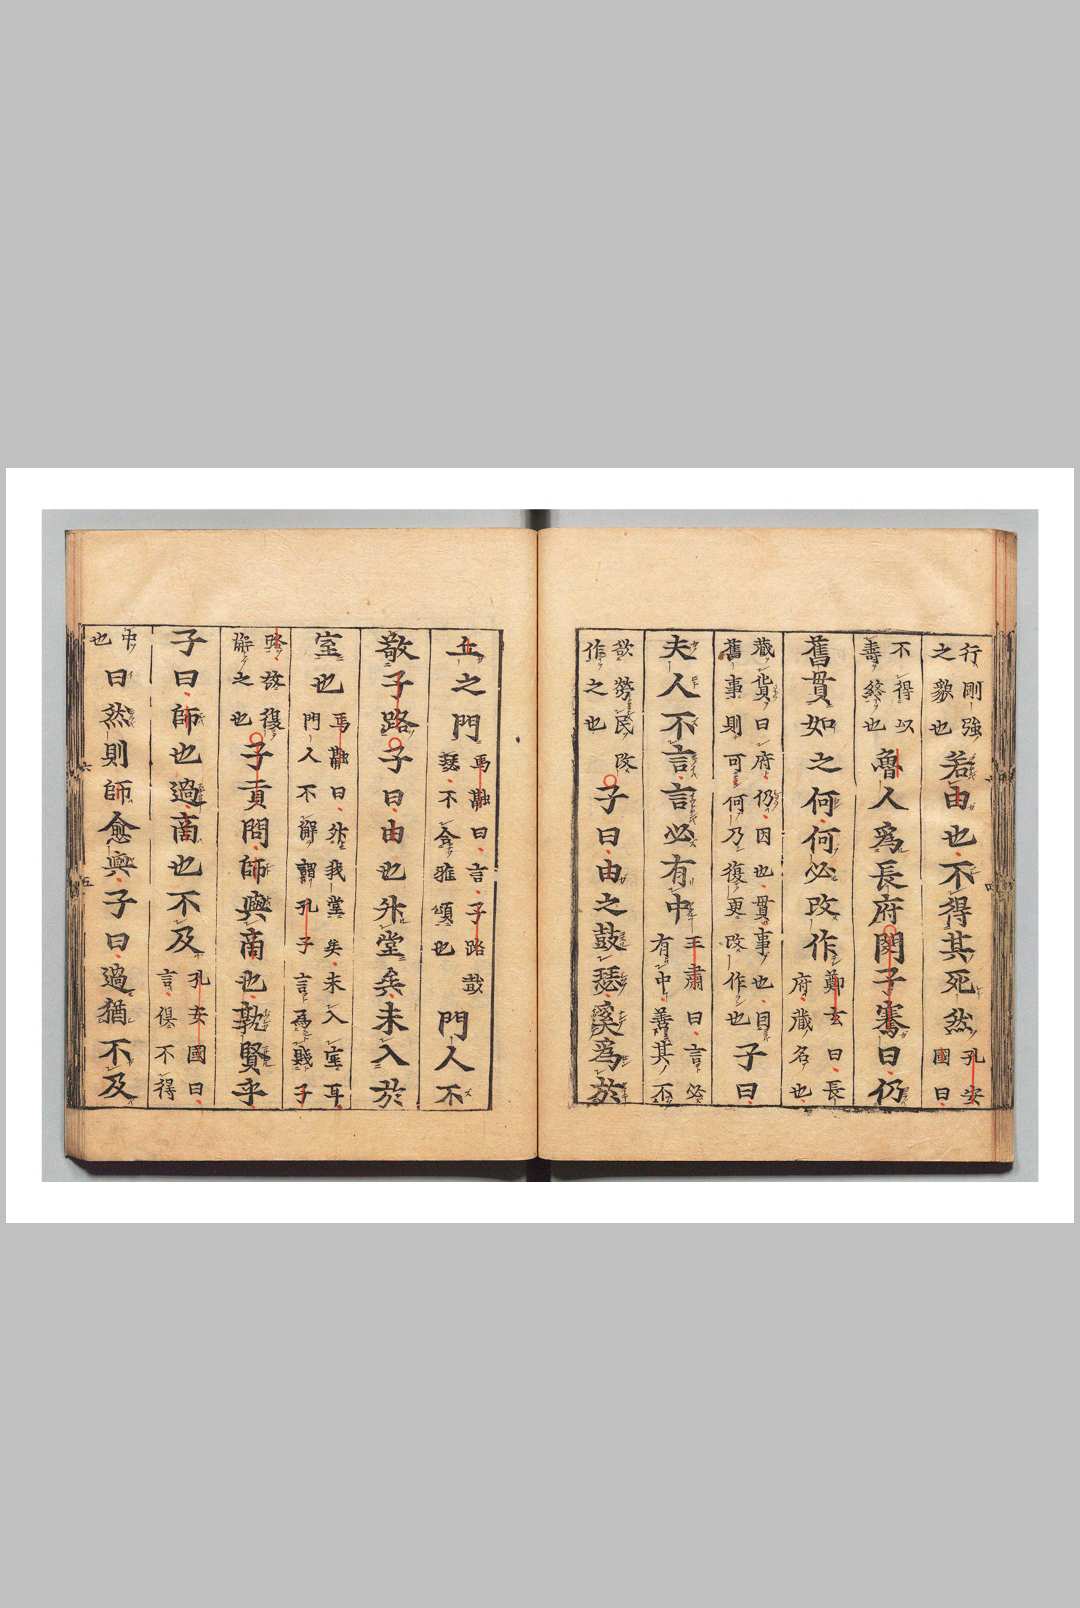 行剛強之貌也若由也不得其死然孔安國曰
不得以壽終也魯人爲長府閔子騫曰仍
舊貫如之何何必改作鄭玄曰長府藏名也
藏貨曰府仍因也貫事也因舊事則可何乃復更改作也子曰
夫人不言言必有中王肅曰言必有中善其不
欲勞民改作之也子曰由之鼓瑟奚爲於
丘之門馬融曰言子路鼓瑟不合雅頌也門人不
敬子路子曰由也升堂矣未入於
室也馬融曰升我堂矣未入室耳門人不解謂孔子言爲賤子
路故復解之也子貢問師與商也孰賢乎
子曰師也過商也不及孔安國曰言俱不得
中也曰然則師愈與子曰過猶不及